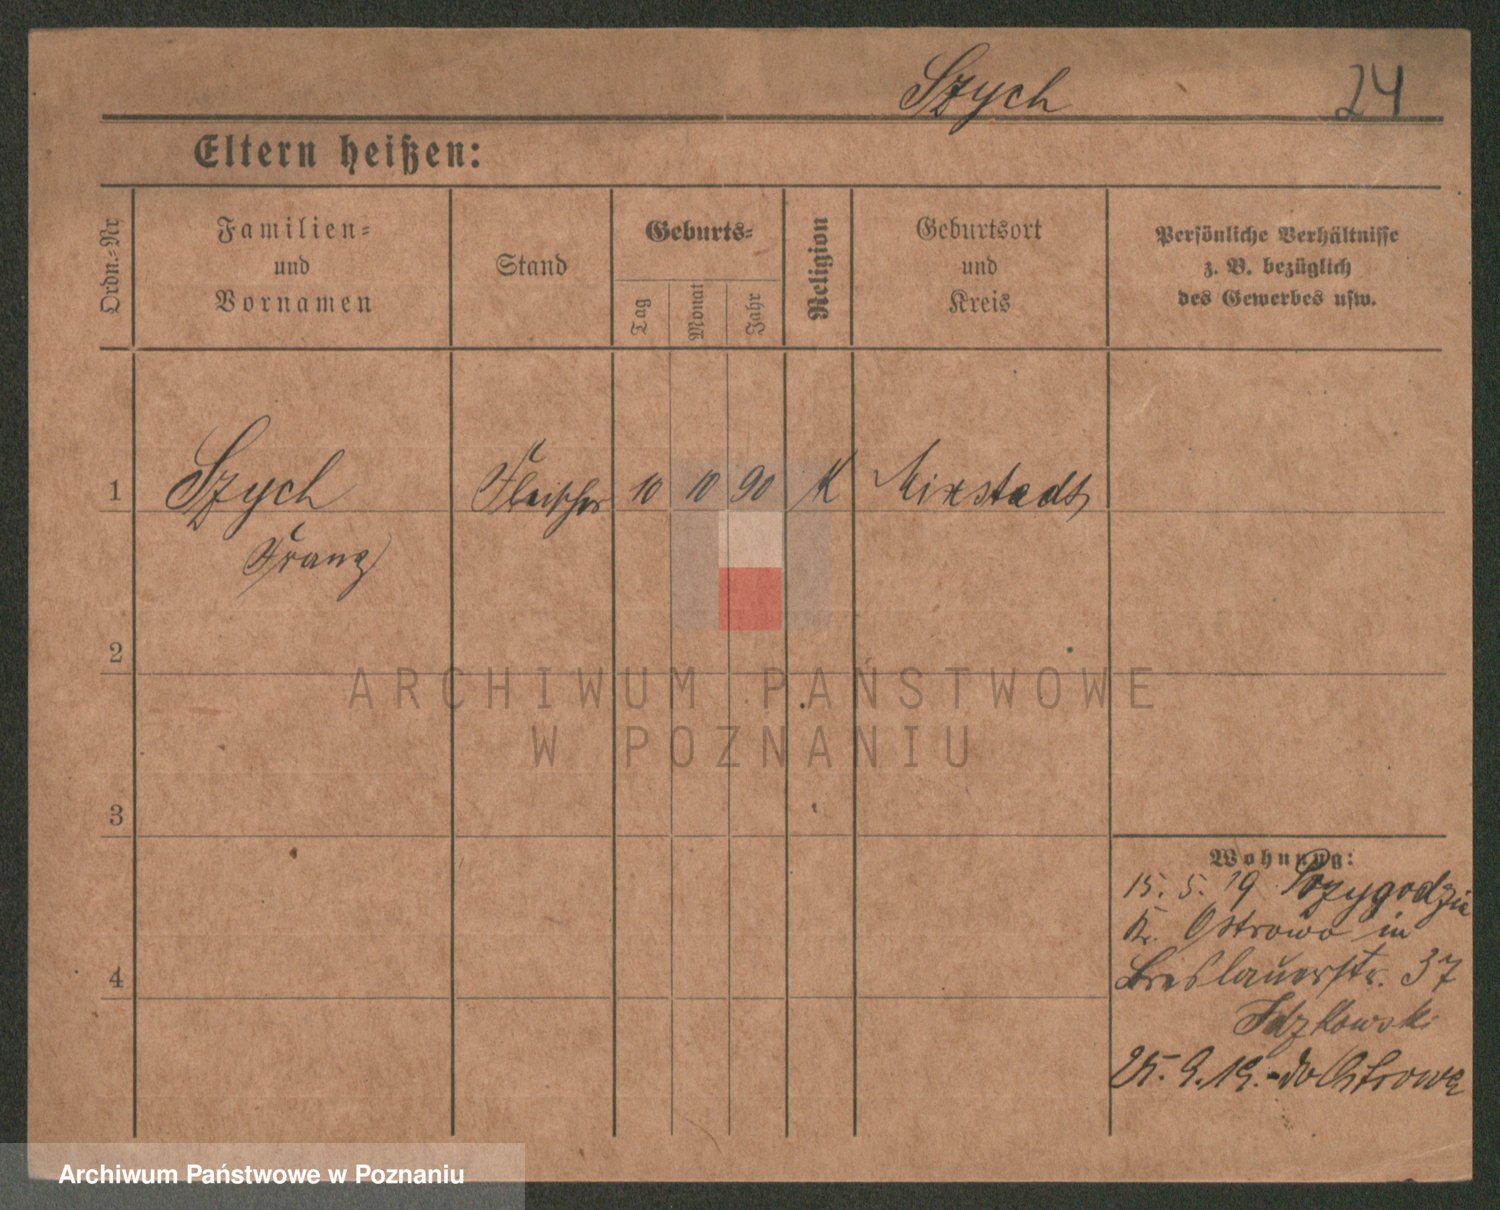 Szych 24
Eltern heißen:
Ordn.-Nr
Familien-
und
Vornamen
Stand
Geburts-
Tag
Monat
Jahr
Religion
Geburtsort
und
Kreis
Persönliche Verhältnisse
z. B. bezüglich
des Gewerbes usw.
1 Szych Fleischer 10 10 90 K Mixstadt
Franz
2
3
4
Wohnung:
15. 5. 19 Przygodzice
Kr. Ostrowo in
Breslauerstr. 37
Idzkowski
25. 9. 19. - do Ostrowa
ARCHIWUM PAŃSTWOWE
W POZNANIU
Archiwum Państwowe w Poznaniu